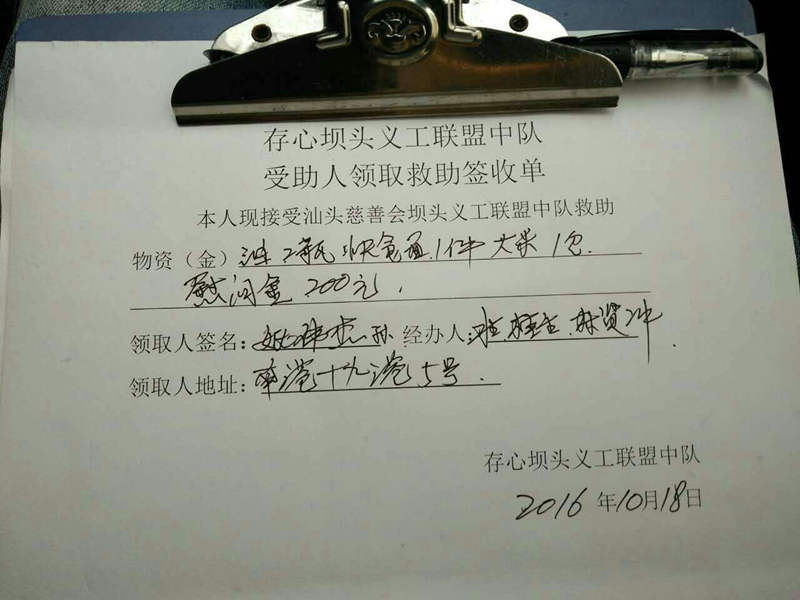 存心坝头义工联盟中队
受助人领取救助签收单
本人现接受汕头慈善会坝头义工联盟中队救助
物资（金）油 2瓶 快食面 1件 大米 1包.
慰问金 200元，
领取人签名： 孙 经办人：
领取人地址：南港十九港 5号.
存心坝头义工联盟中队
2016年10月18日